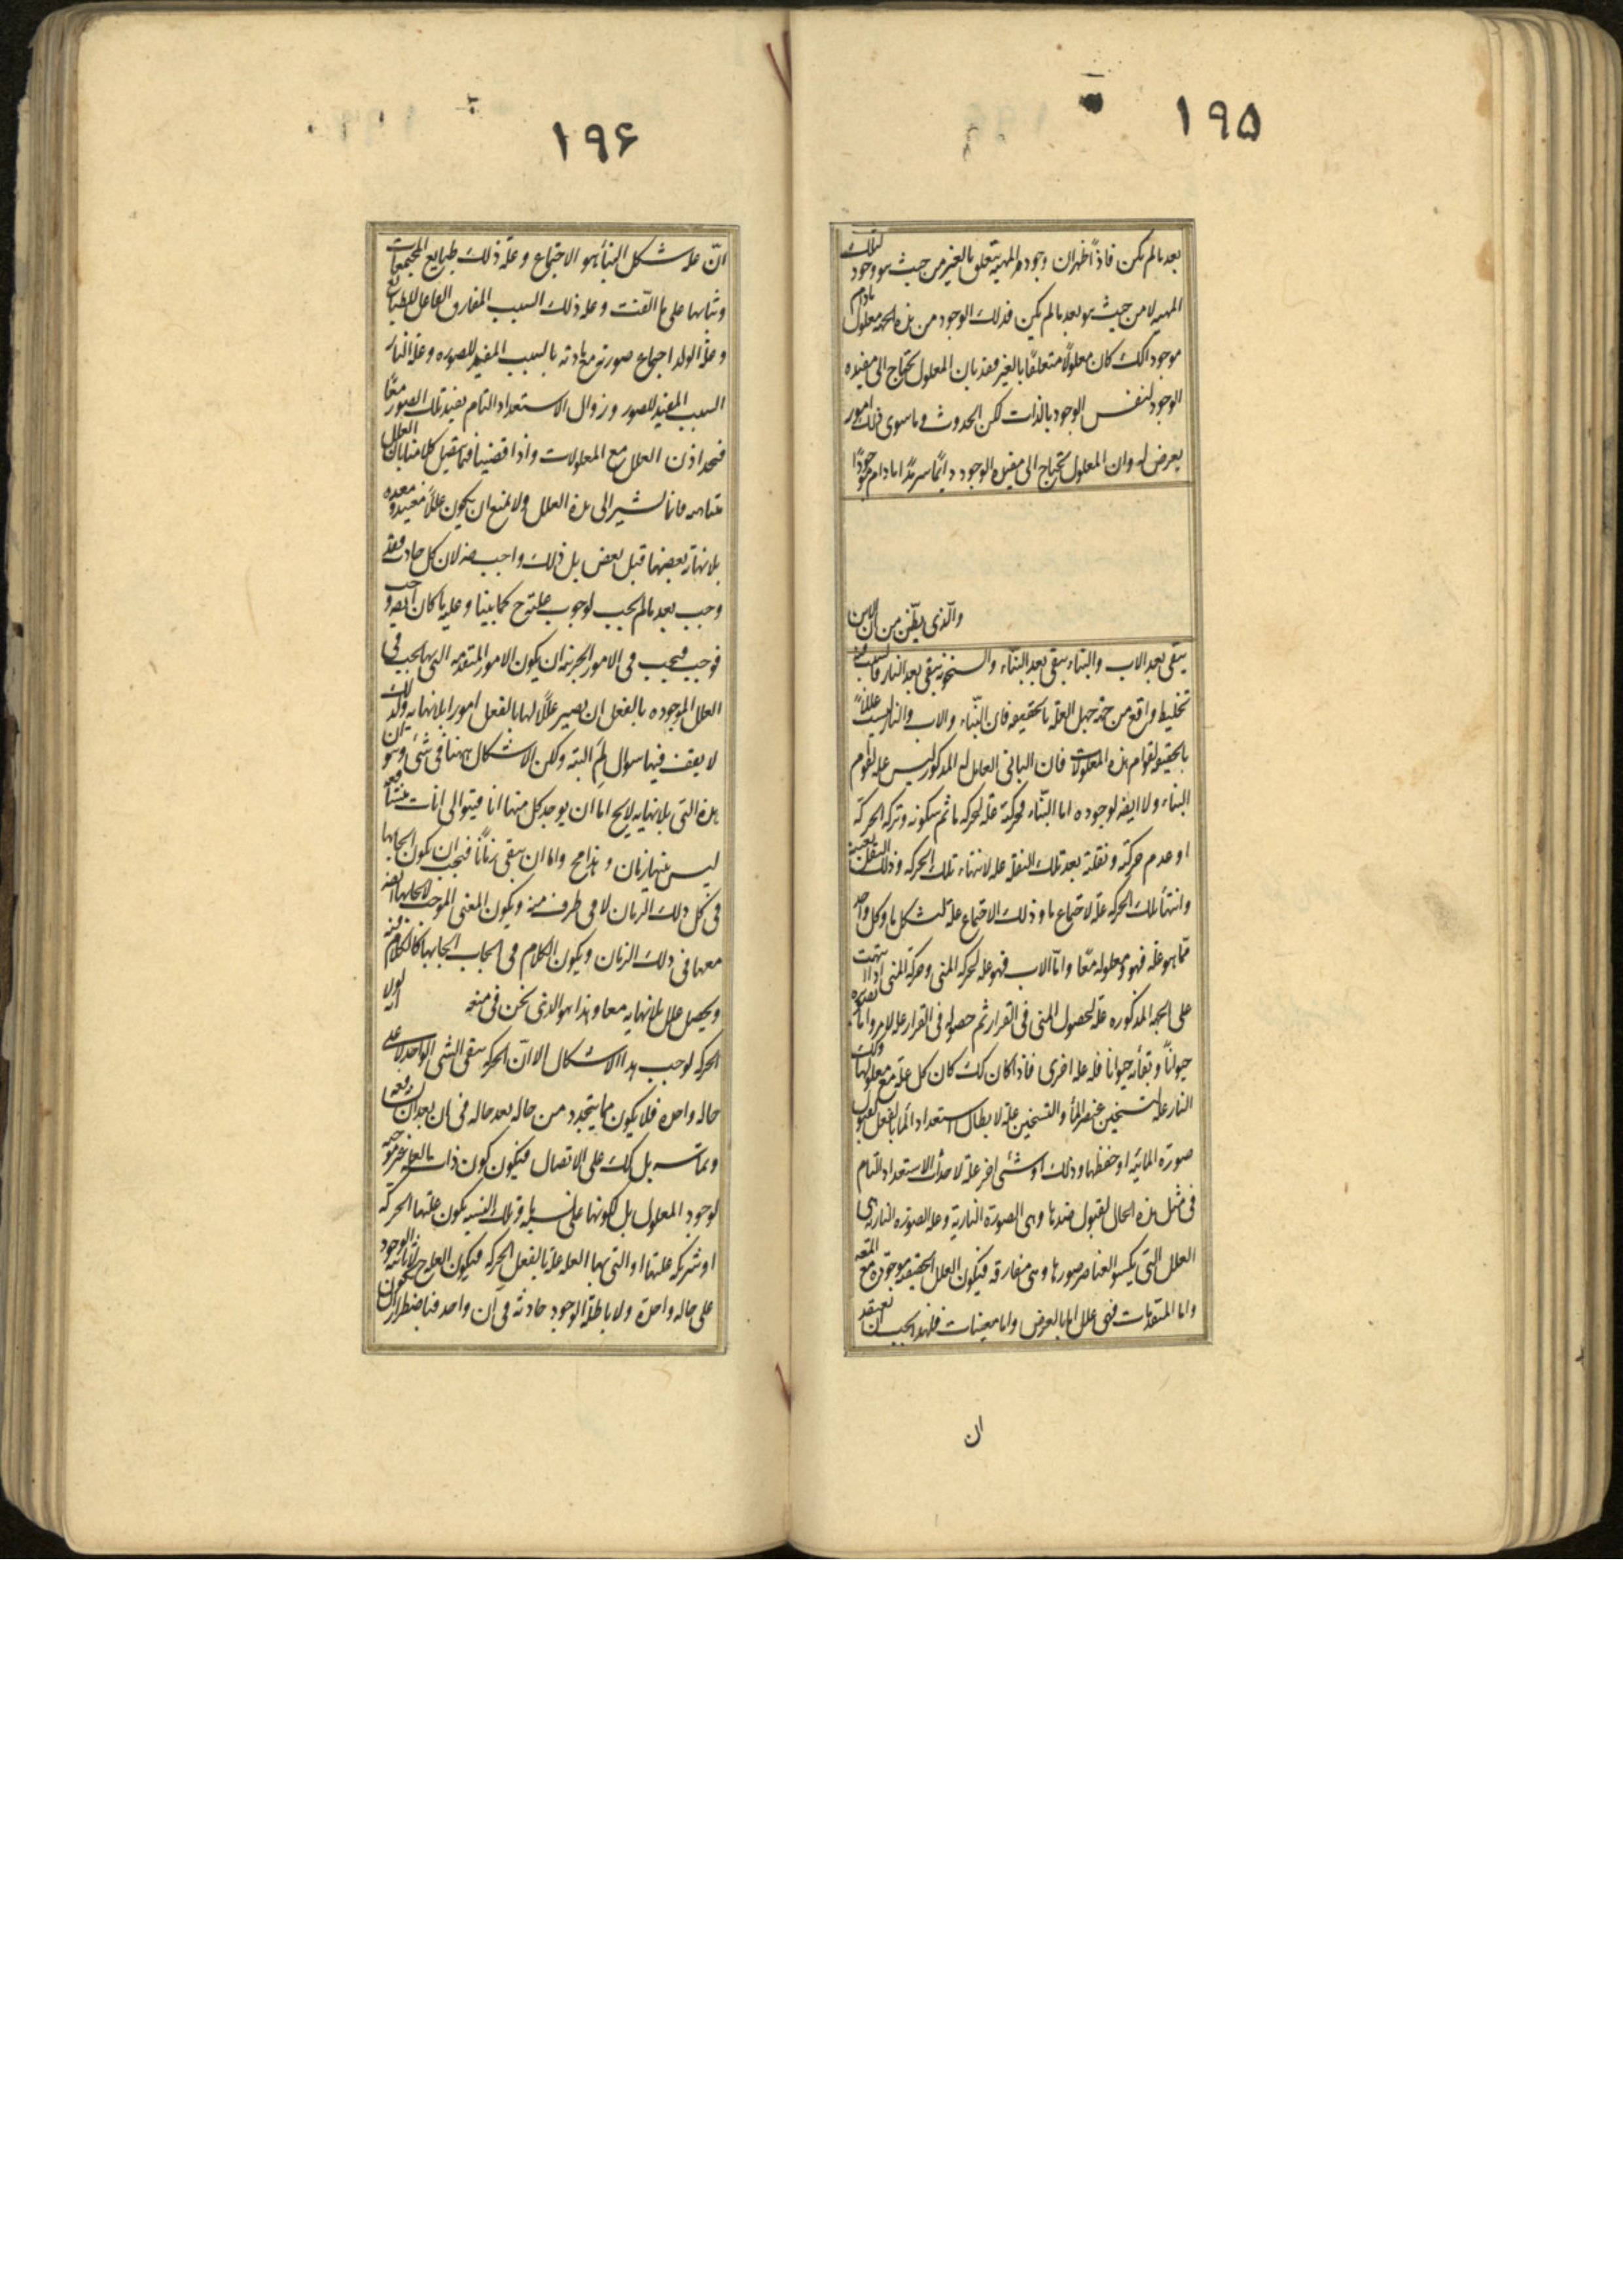 ١٩۵
بعد ما لم يكن فاذاً ظهر ان وجود المهية يتعلق بالغير من حيث هو وجود لتلك
المهية لا من حيث هو بعد ما لم يكن فذلك الوجود من هذه الجهة معلول مادام
موجودا كك كان معلولاً متعلقاً بالغير فقد بان المعلول يحتاج الى مفيده
الوجود لنفس الوجود بالذات لكن الحدوث و ما سوى ذلك امور
يعرض له وان المعلول يحتاج الى مفيده الوجود دايماً سرمداً مادام موجوداً
والذى يظن من ان الابن
يبقى بعد الاب والبناء يبقى بعد البنّاء والسخونة يبقى بعد النار فالسبب فيه
تخليط واقع من جهة جهل العلة بالحقيقه فان البنّاء والاب والنار ليست عللاً
بالحقيقه لقوام هذه المعلولات فان البانى العامل له المذكور ليس عله لقوام
البناء ولا ايضه لوجوده اما البنّاء فحركته علة لحركه ما ثم سكونه وتركه الحركة
او عدم حركته و نقلته بعد تلك النقله عله لانتهاء تلك الحركه وذلك النقل بعينه
وانتهأ تلك الحركه علة لاجتماع ما و ذلك الاجتماع علة لشكل ما وكل واحد
ممّا هو علة فهو و معلوله معًا وامّا الاب فهو عله لحركه المنى وحركة المنى اذا انتهت
على الجهه المذكوره علة لحصول المنى فى القرار ثم حصوله فى القرار عله لامر واما تصوره
حيواناً و بقاءه حيوانا فله عله اخرى فاذا كان كك كان كل علة مع معلولها وكك
النار علة لتسخين عنصر المأ والتسخين علة لابطال استعداد المأ بالفعل لقبول
صورة المائيه او حفظها وذلك او شئى اخر علة لاحداث الاستعداد التام
فى مثل هذه الحال لقبول ضدها وهى الصورة النارية وعله الصوره الناريه هى
العلل التى يكسو العناصر صورها وهى مفارقه فيكون العلل الحقيقه موجوده مع المعـ
واما المتقدمات فهى علل اما بالعرض واما معينات فلهذا يجب ان نعتقد
ان
١٩۶
انّ علة شكل البنأ هو الاجتماع وعلة ذلك طبايع المجتمعات
وثباتها على ما الّفت وعله ذلك السبب المفارق الفاعل للطبايع
وعلة الولد اجتماع صورته مع مادته بالسبب المفيد للصوره وعلة النار
السبب المفيد للصور وزوال الاستعداد التام لضد تلك الصور معًا
فنجد اذن العلل مع المعلولات واذا قضينا فيما يتصل كلامنا بان العلل
متناهيه فانما نشير الى هذه العلل ولا نمنع ان يكون عللاً معينه و معده
بلا نهاية بعضها قبل بعض بل ذلك واجب ضرورة لان كل حادث فقد
وجب بعد ما لم يجب لوجوب علته ح كما بينا وعلته ما كان ايضه وجب
فوجب فيجب فى الامور الجزئية ان يكون الامور المتقدمه التى بها يجب فى
العلل الموجوده بالفعل ان يصير عللاً لها بالفعل امورا بلا نهايه ولذلك
لا يقف فيها سوال لِمَ البته ولكن الاشكال ههنا فى شئى وهو ان
هذه التى بلا نهايه لا يخ اما ان يوجد كل منها انا فيتوالى انات متشافعه
ليس بينها زمان و هذا مح واما ان يبقى زماناً فيجب ان يكون ايجابها
فى كل ذلك الزمان لا فى طرف منه ويكون المعنى الموجب لايجابها ايضه
معها فى ذلك الزمان ويكون الكلام فى ايجاب ايجابها كالكلام فيه
ويحصل علل بلا نهايه معا وهذا هو الذى نحن فى منعه لولا انه
الحركه لوجب هذا الاشكال الا انّ الحركه يبقى الشئى الواحد لا على
حاله واحده فلا يكون ما يتجدد من حاله بعد حاله فى ان بعد ان يشافعه
ويماسه بل كك على الاتصال فيكون كون ذات العله غير موجبه
لوجود المعلول بل لكونها على نسبة ما و تلك النسبه يكون علتها الحركه
او شريكه علتها او التى بها العله علة بالفعل الحركه فيكون العله ح لا ثابته الوجود
على حاله واحدة ولا باطلة الوجود حادثة فى آن واحد فباضطرار ان يكون